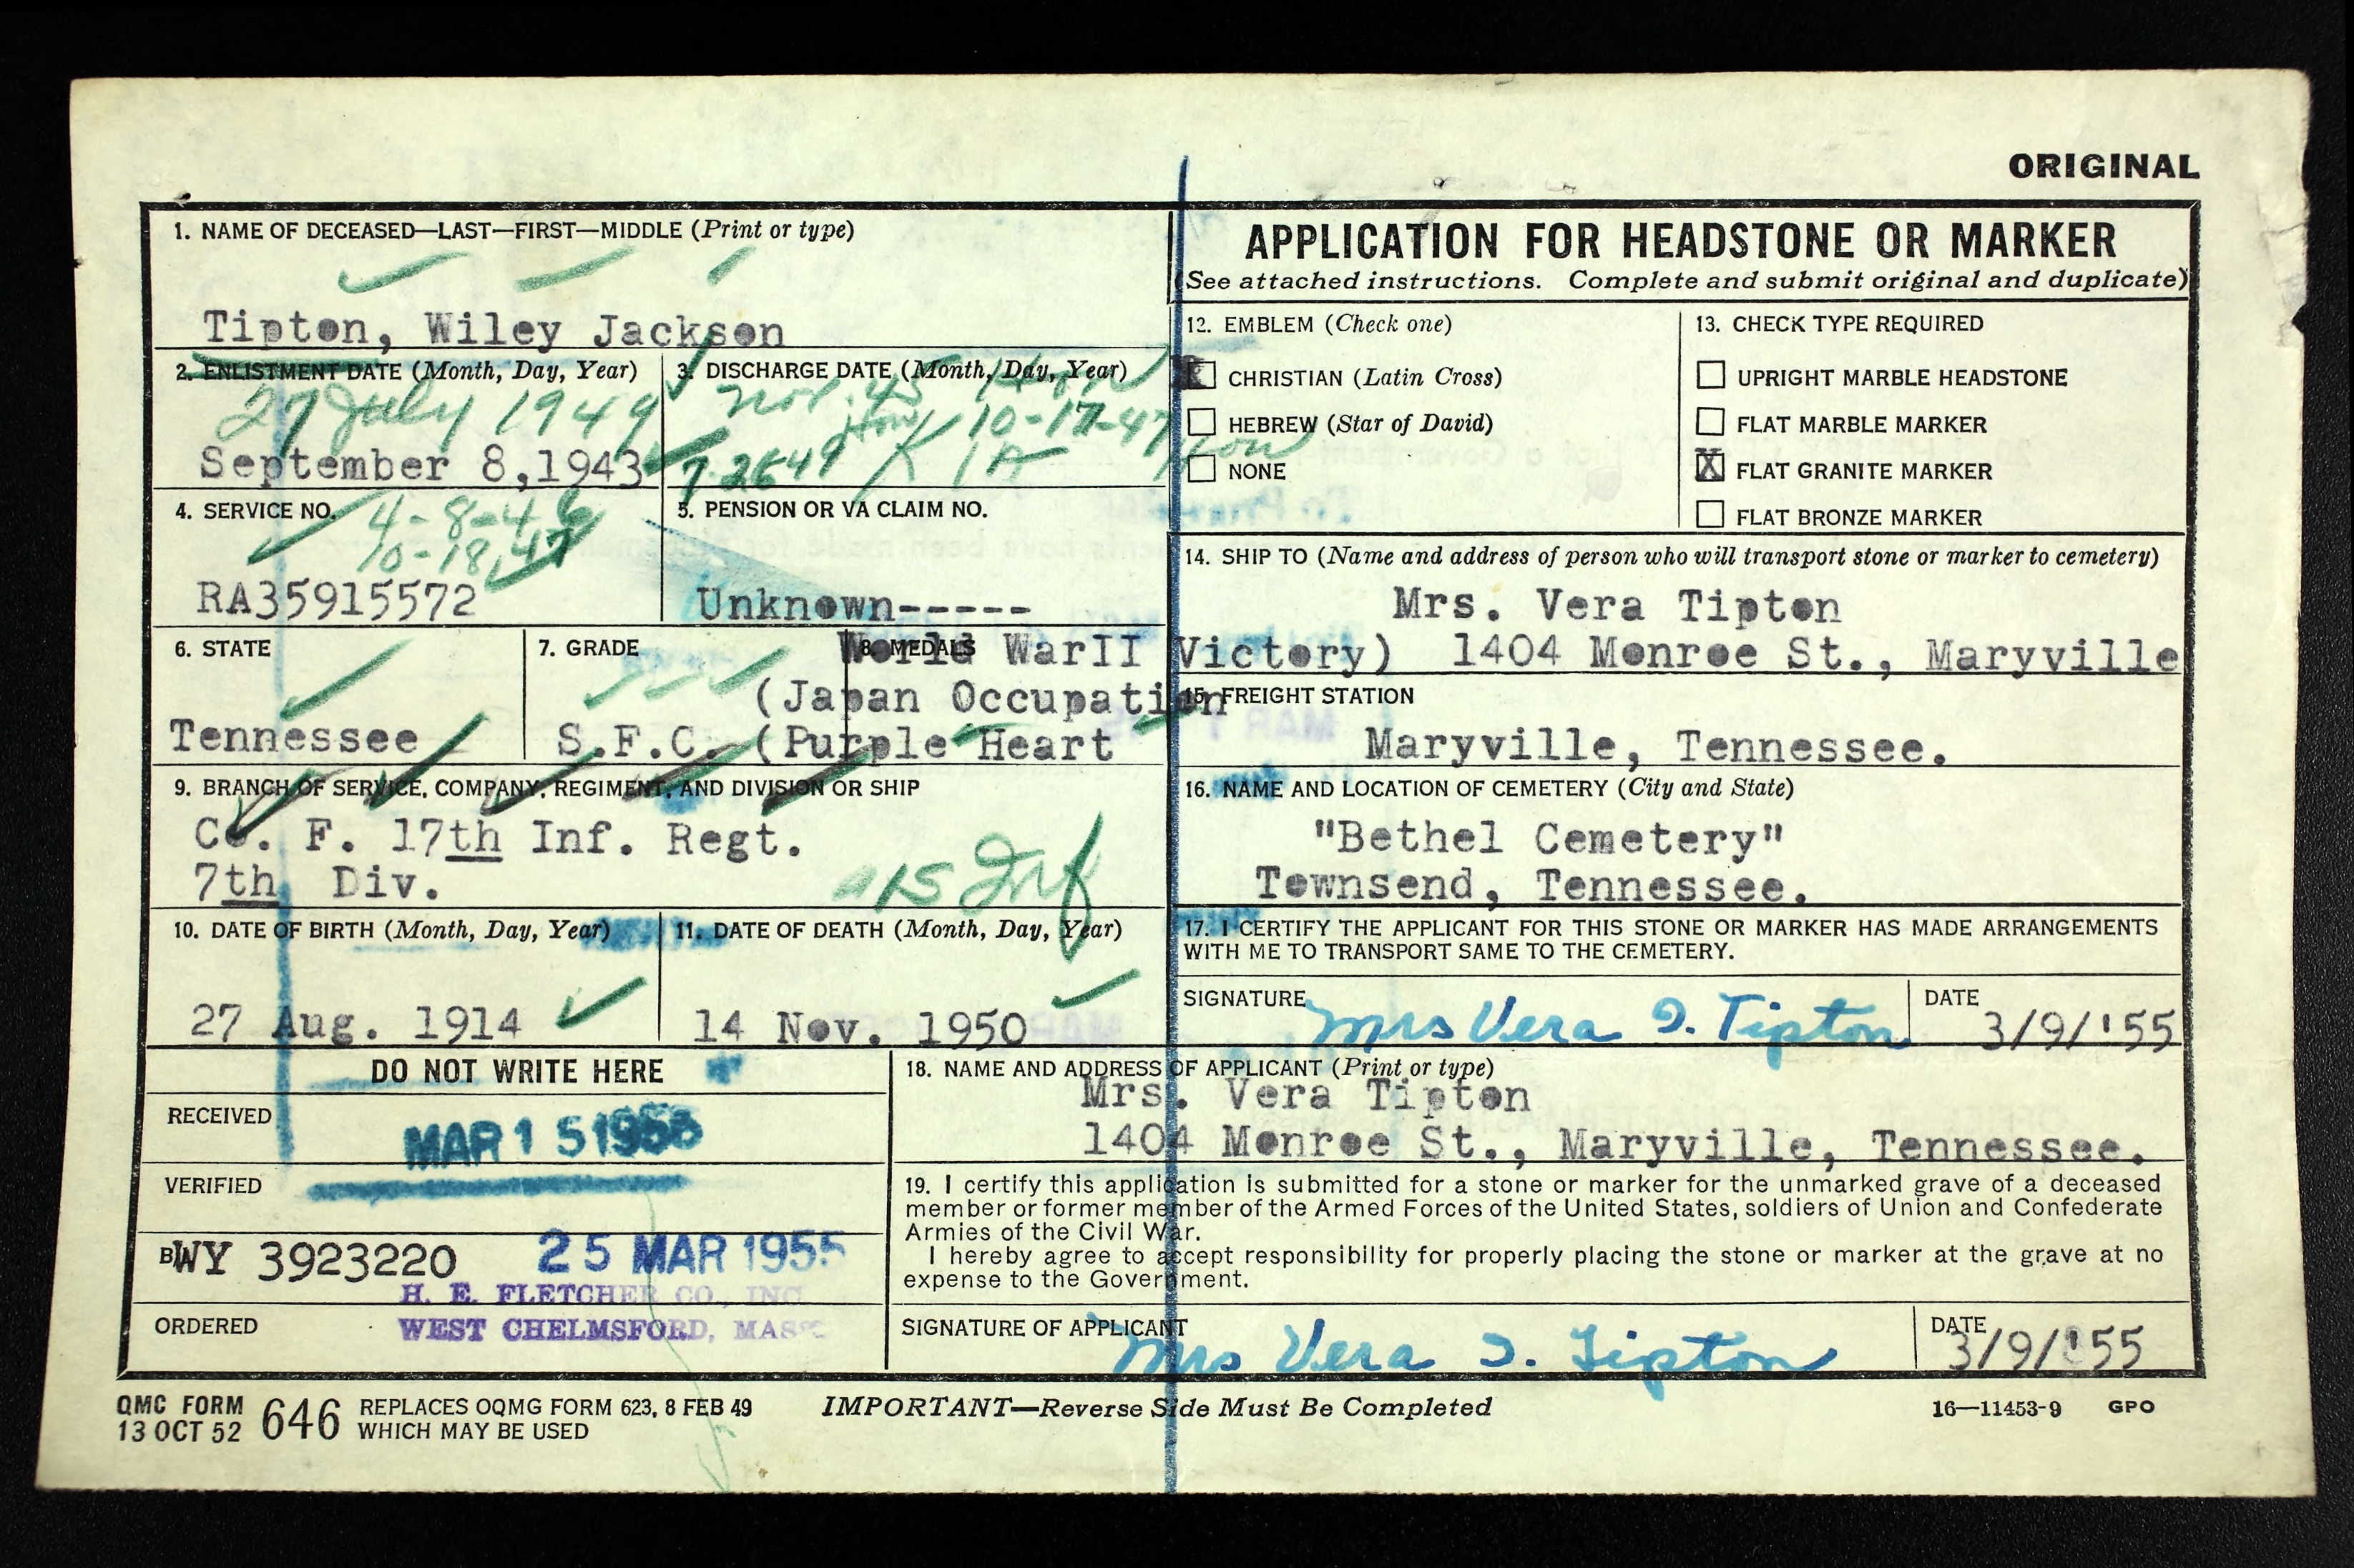 ORIGINAL
1. NAME OF DECEASED—LAST—FIRST—MIDDLE (Print or type)
Tipton, Wiley Jackson
2. ENLISTMENT DATE (Month, Day, Year)
27 July 1949
September 8,1943
3. DISCHARGE DATE (Month, Day, Year)
Nov. 45
10-17-47
7-26-49
4. SERVICE NO.
4-8-46
10-18,47
RA35915572
5. PENSION OR VA CLAIM NO.
Unknown-----
6. STATE
Tennessee
7. GRADE
S.F.C.
8. MEDALS
World WarII Victory)
(Japan Occupation
(Purple Heart
9. BRANCH OF SERVICE, COMPANY, REGIMENT, AND DIVISION OR SHIP
Co. F. 17th Inf. Regt.
7th Div.
15 Inf
10. DATE OF BIRTH (Month, Day, Year)
27 Aug. 1914
11. DATE OF DEATH (Month, Day, Year)
14 Nov. 1950
DO NOT WRITE HERE
RECEIVED
MAR 15
VERIFIED
BWY 3923220
25 MAR 1955
H. E. FLETCHER CO., INC
WEST CHELMSFORD, MASS
ORDERED
APPLICATION FOR HEADSTONE OR MARKER
(See attached instructions. Complete and submit original and duplicate)
12. EMBLEM (Check one)
CHRISTIAN (Latin Cross)
HEBREW (Star of David)
NONE
13. CHECK TYPE REQUIRED
UPRIGHT MARBLE HEADSTONE
FLAT MARBLE MARKER
X FLAT GRANITE MARKER
FLAT BRONZE MARKER
14. SHIP TO (Name and address of person who will transport stone or marker to cemetery)
Mrs. Vera Tipton
1404 Monroe St., Maryville
15. FREIGHT STATION
Maryville, Tennessee.
16. NAME AND LOCATION OF CEMETERY (City and State)
"Bethel Cemetery"
Townsend, Tennessee.
17. I CERTIFY THE APPLICANT FOR THIS STONE OR MARKER HAS MADE ARRANGEMENTS
WITH ME TO TRANSPORT SAME TO THE CEMETERY.
SIGNATURE
Mrs Vera I. Tipton
DATE
3/9/'55
18. NAME AND ADDRESS OF APPLICANT (Print or type)
Mrs. Vera Tipton
1404 Monroe St., Maryville, Tennessee.
19. I certify this application is submitted for a stone or marker for the unmarked grave of a deceased
member or former member of the Armed Forces of the United States, soldiers of Union and Confederate
Armies of the Civil War.
I hereby agree to accept responsibility for properly placing the stone or marker at the grave at no
expense to the Government.
SIGNATURE OF APPLICANT
Mrs Vera I. Tipton
DATE
3/9/'55
QMC FORM
13 OCT 52
646
REPLACES OQMG FORM 623, 8 FEB 49
WHICH MAY BE USED
IMPORTANT—Reverse Side Must Be Completed
16—11453-9 GPO